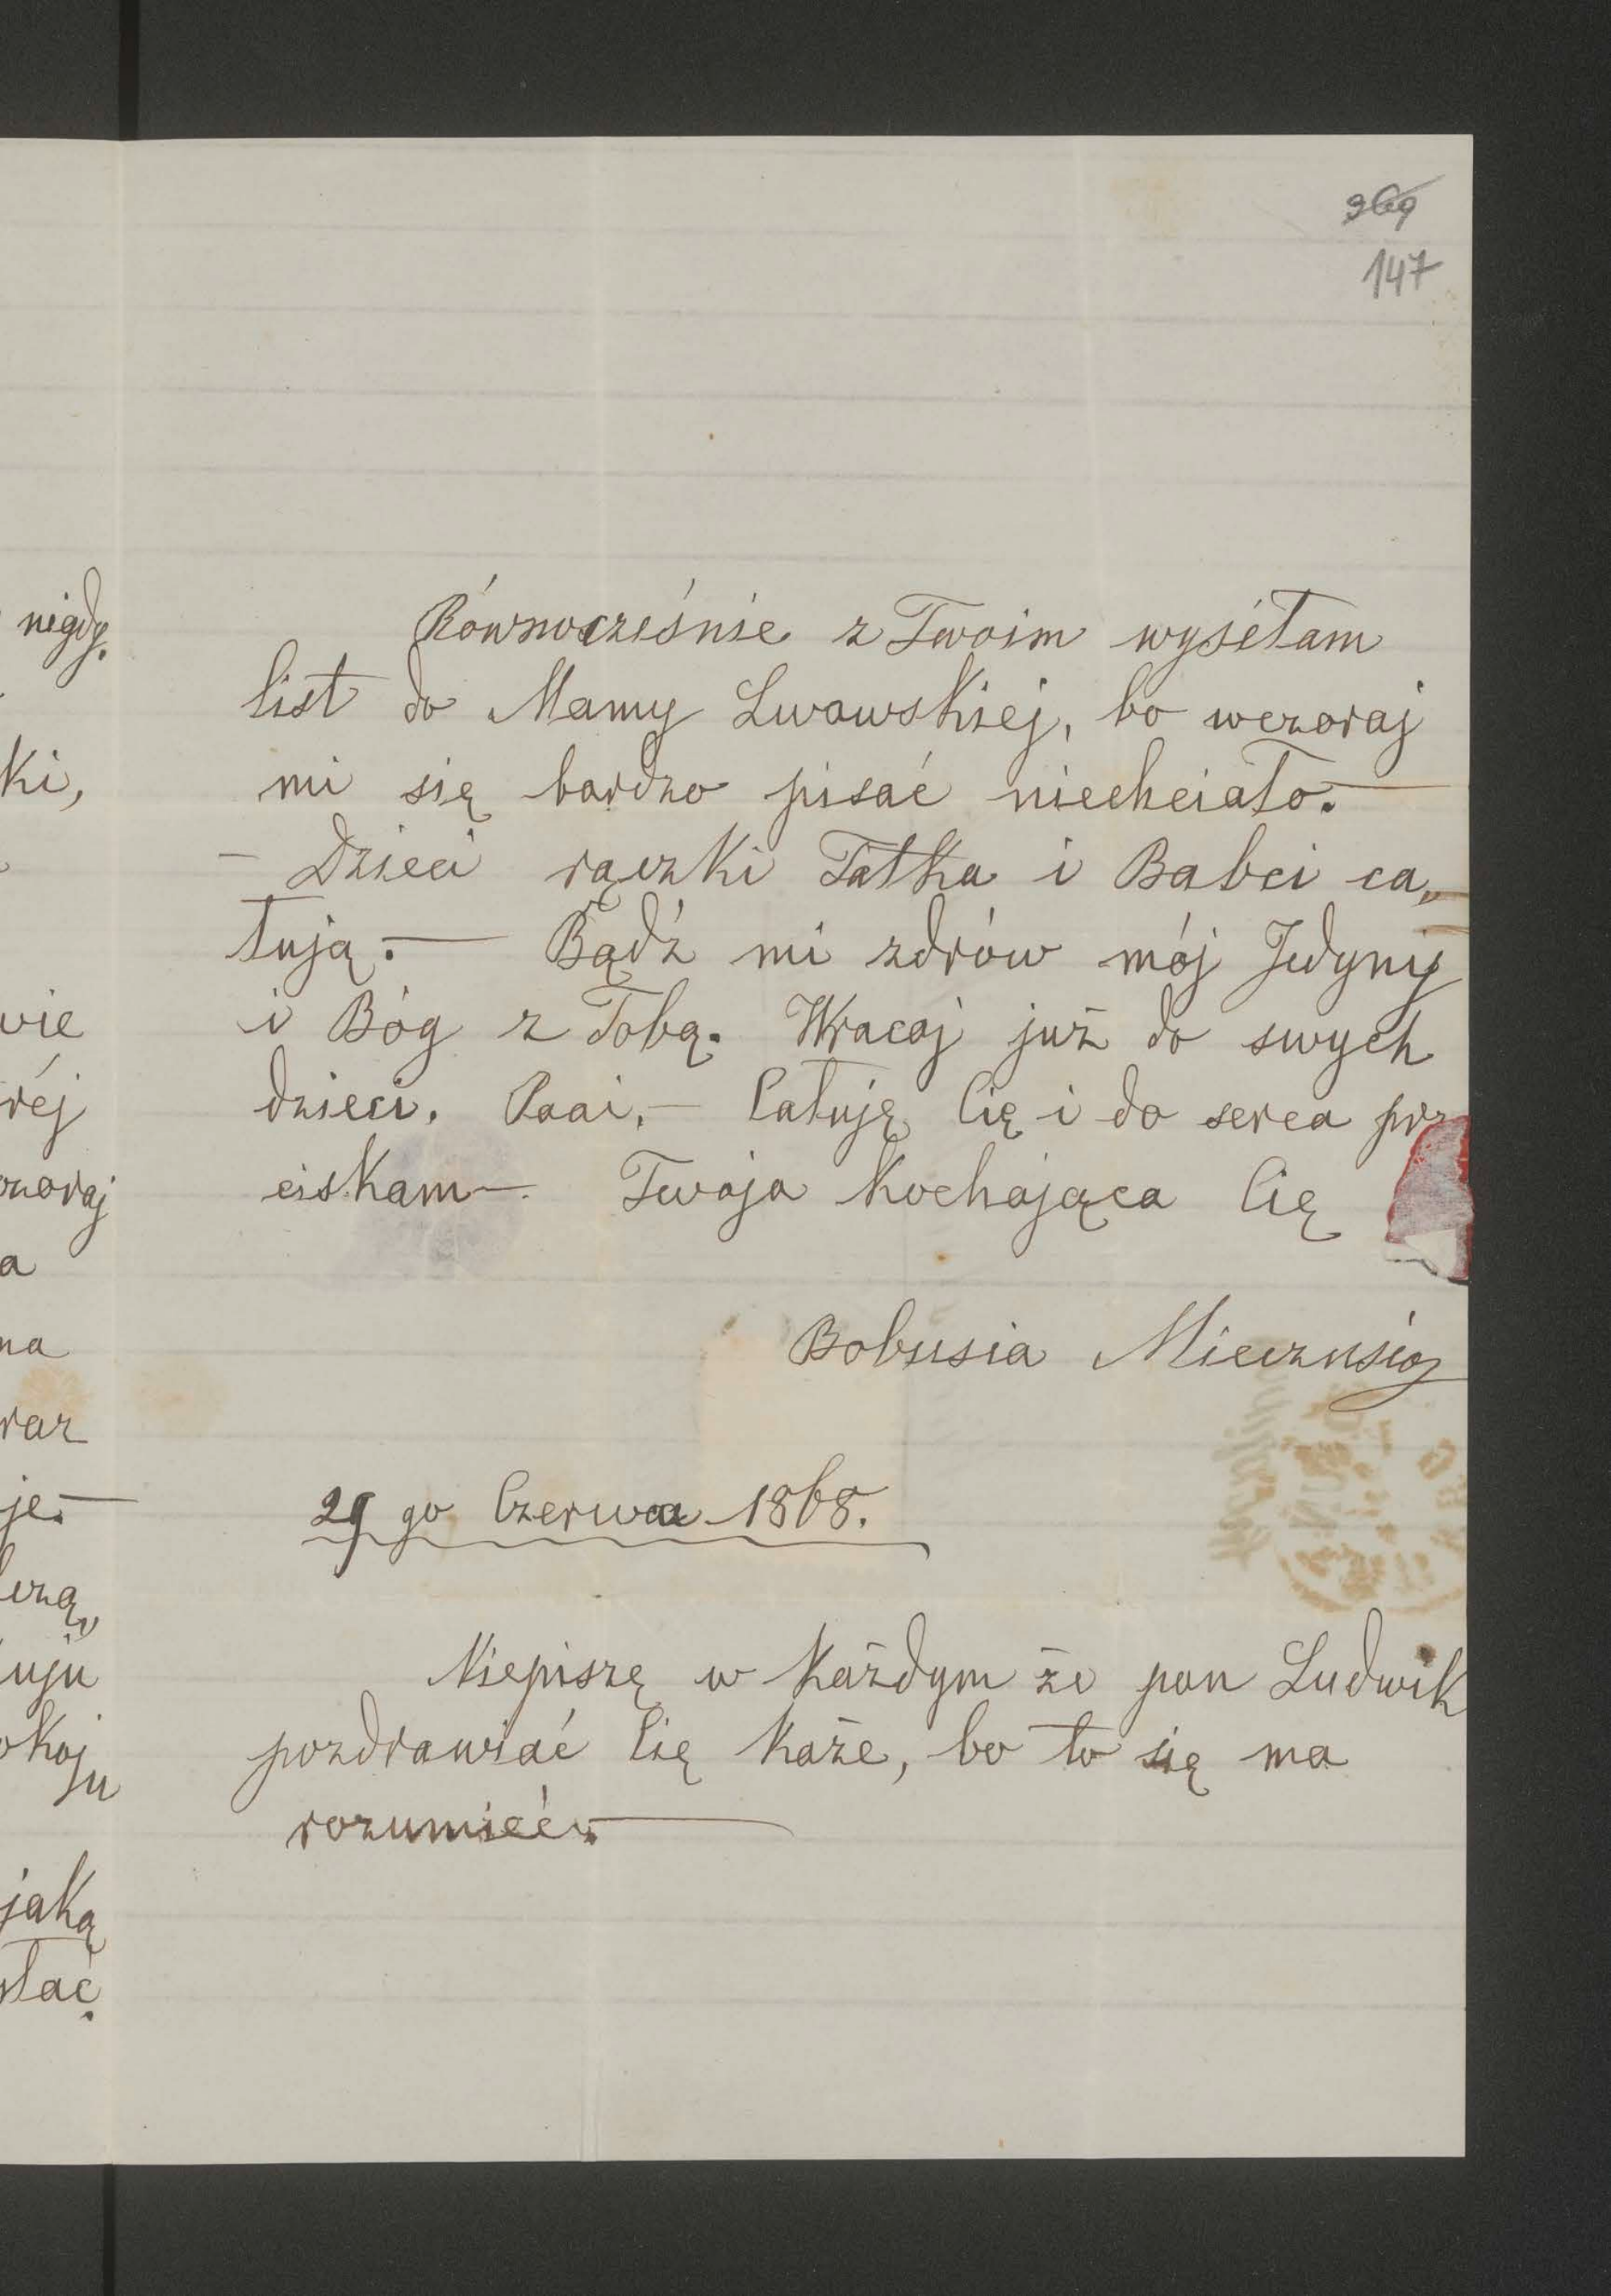 369
147
nigdy.
ki,
wie
rej
a
na
raz
je.—
uju
okoju
jaką
Równocześnie z Twoim wyséłam
list do Mamy Lwowskiej, bo wczoraj
mi się bardzo pisać niechciało.—
— Dzieci rączki Tatka i Babci ca„
łują.— Bądź mi zdrów mój Jedyny
i Bóg z Tobą. Wracaj już do swych
dzieci. Paai.— Całuję Cię i do serca prz
ciskam—. Twoja kochająca Cię
Bobusia Mieczusio
29 go Czerwca 1868.
Niepiszę w każdym że pan Ludwik
pozdrawiać Cię każe, bo to się ma
rozumieć.—